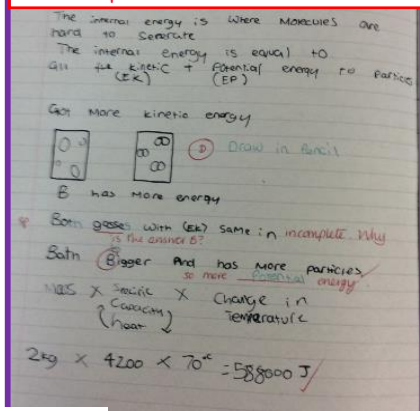 The internal energy is where Molecules are
hard to Seperate
The internal energy is equal to
all the kinetic + Potential energy to Particles
(EK) (EP)
Got More kinetic energy
D Draw in Pencil
B has More energy
Both gasses with (EK) same in incomplete. Why
is the answer B?
Bath Bigger And has More particles
so more Potential energy
Mas X Specific X Change in
Capacity Temerature
(heat)
2kg X 4200 X 70°c = 588000 J